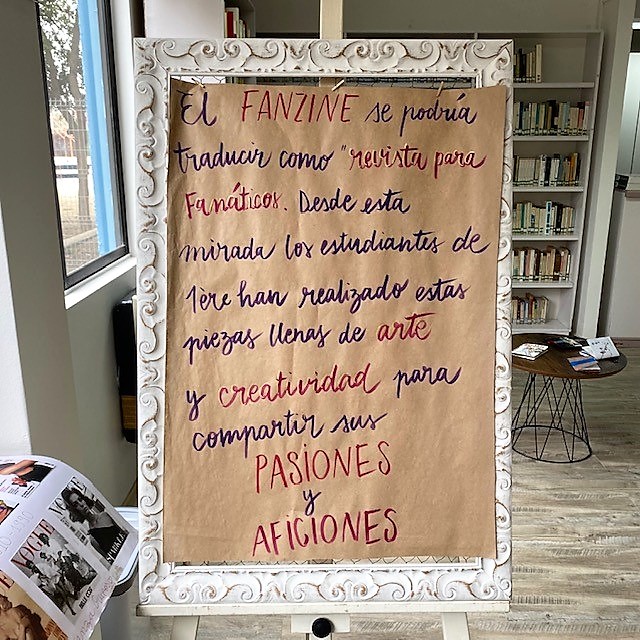 El FANZINE se podría
traducir como "revista para
Fanáticos. Desde esta
mirada los estudiantes de
1ère han realizado estas
piezas llenas de arte
y creatividad para
compartir sus
PASIONES
y
AFICIONES
VOGUE
VOGUE